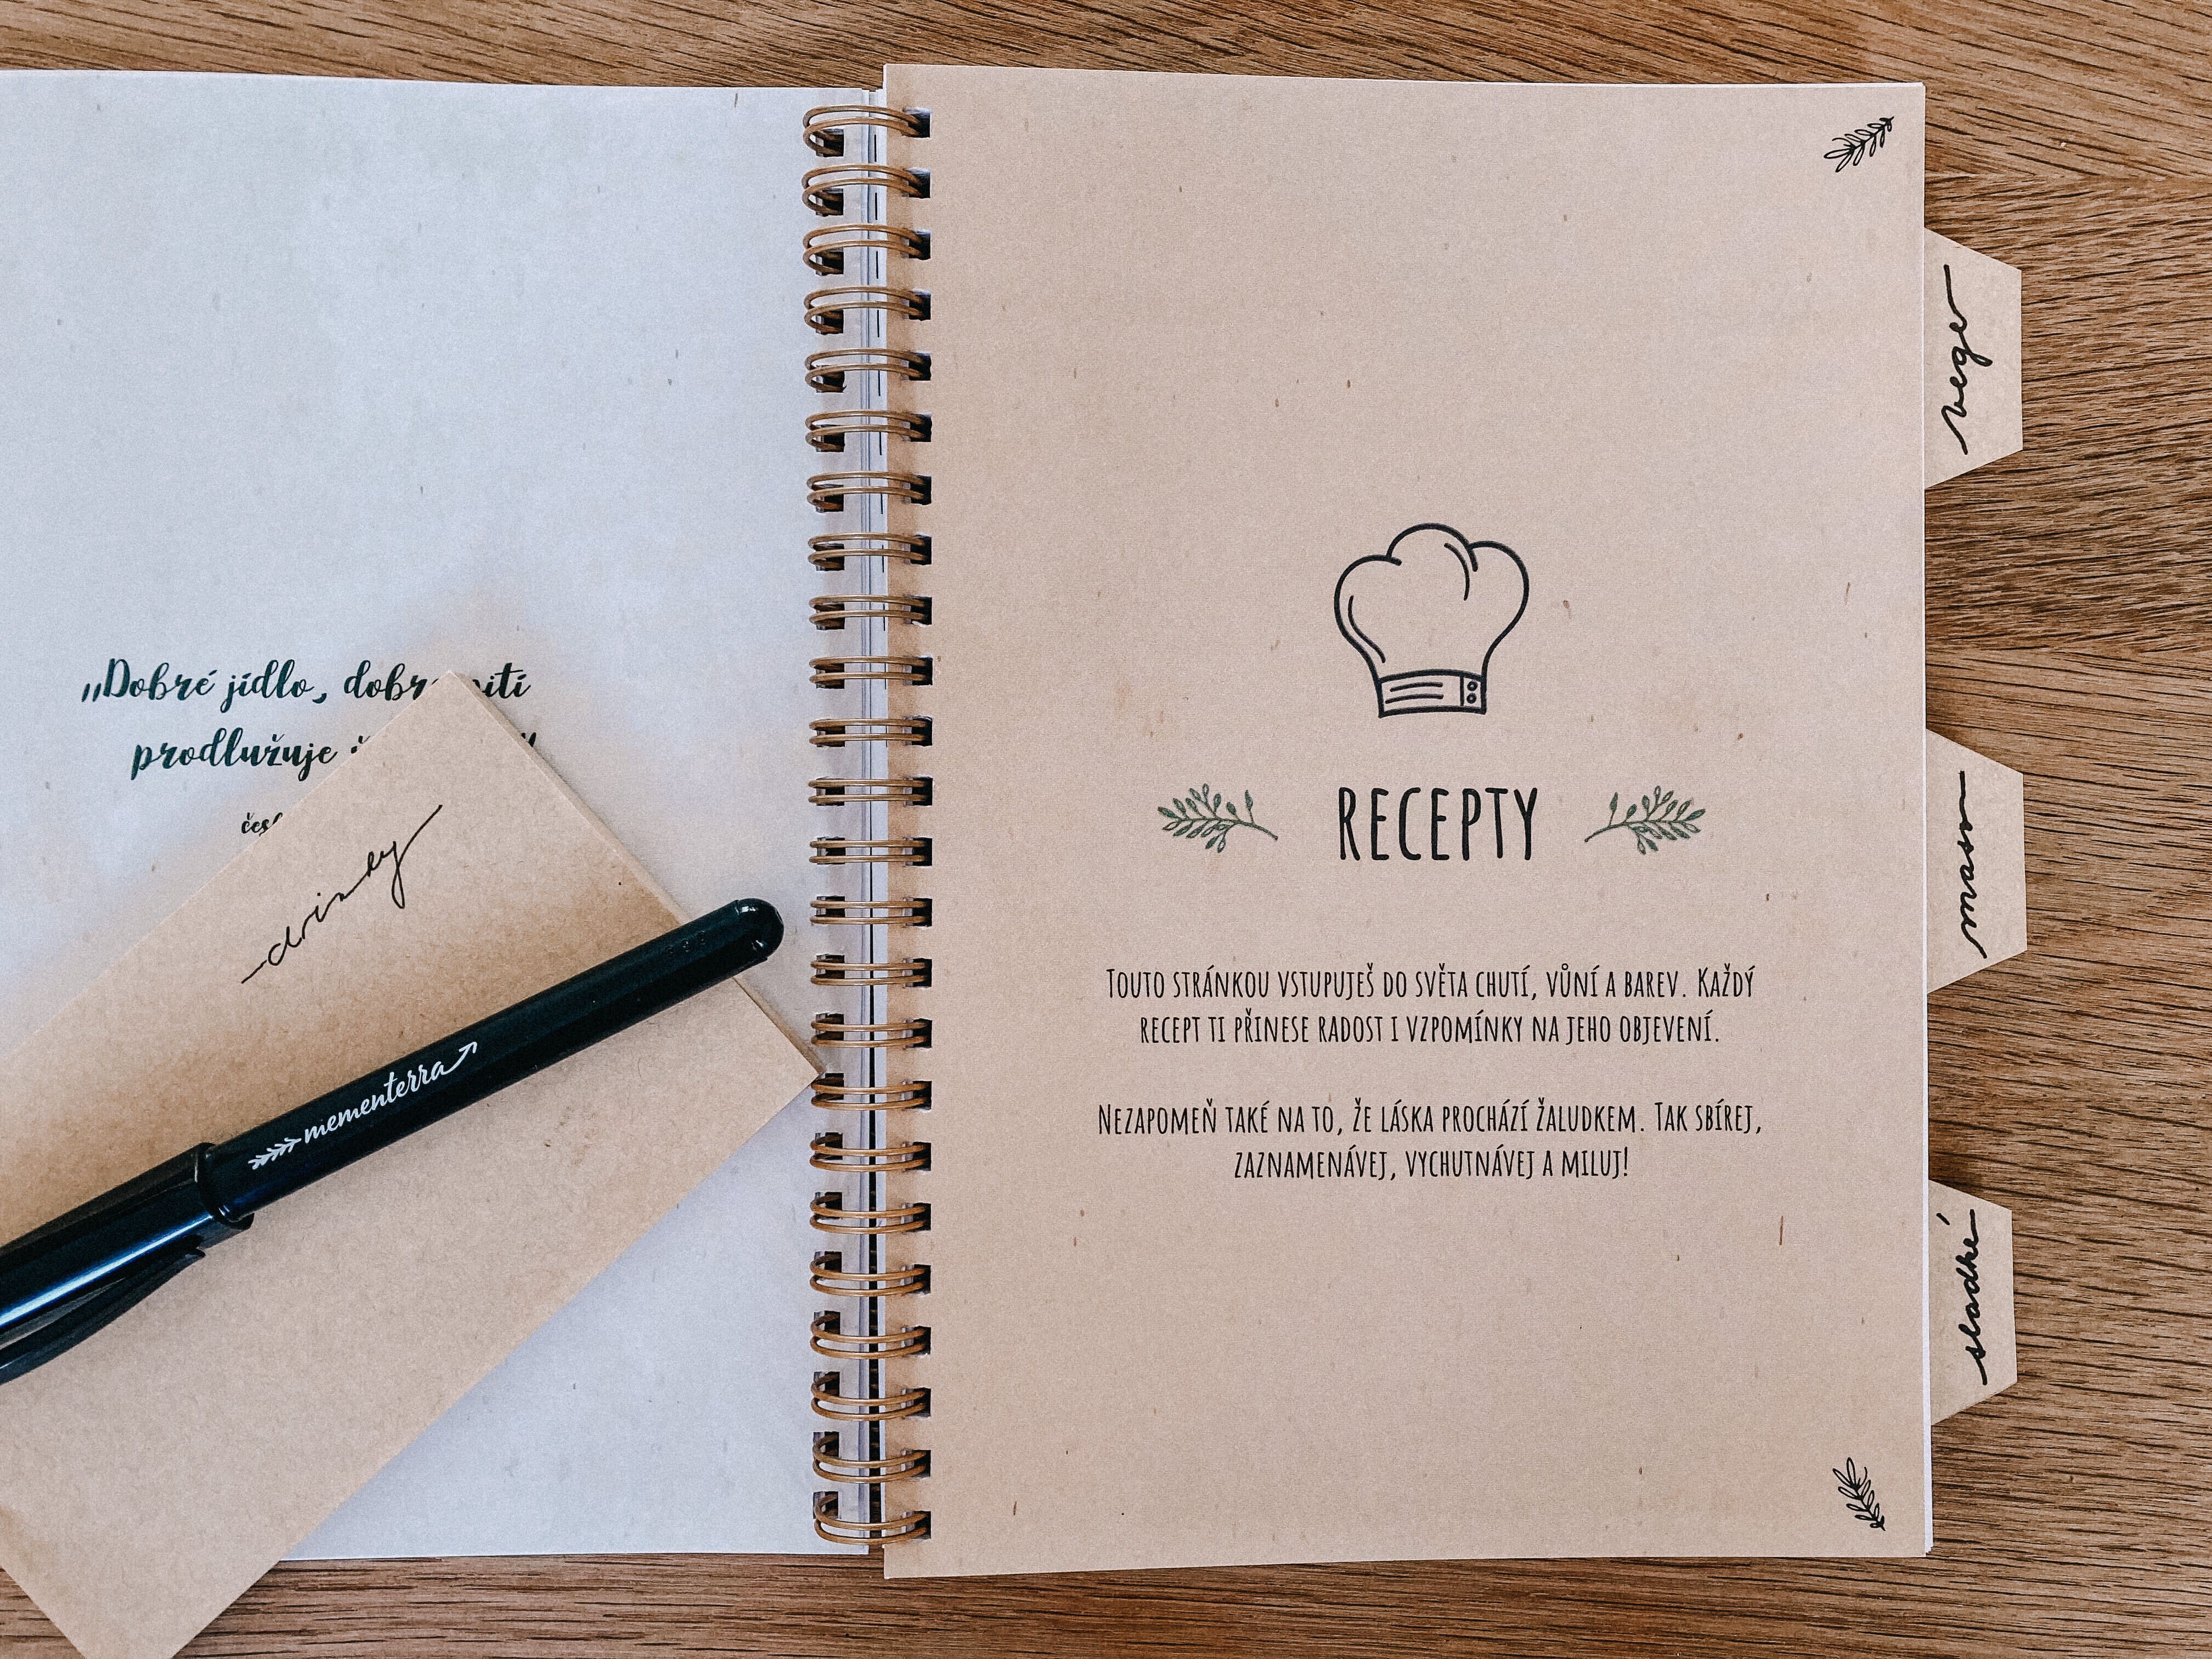 „Dobré jídlo, pití
prodlužuje
drinky
mementerra
RECEPTY
TOUTO STRÁNKOU VSTUPUJEŠ DO SVĚTA CHUTÍ, VŮNÍ A BAREV. KAŽDÝ
RECEPT TI PŘINESE RADOST I VZPOMÍNKY NA JEHO OBJEVENÍ.
NEZAPOMEŇ TAKÉ NA TO, ŽE LÁSKA PROCHÁZÍ ŽALUDKEM. TAK SBÍREJ,
ZAZNAMENÁVEJ, VYCHUTNÁVEJ A MILUJ!
vege
maso
sladké